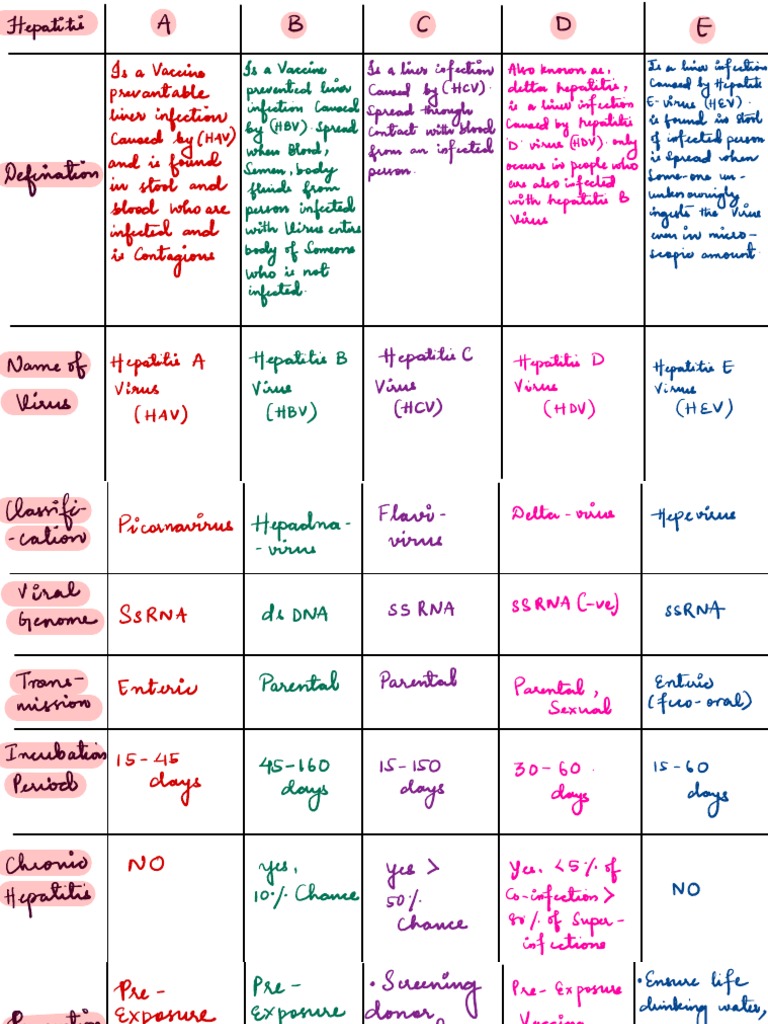 Hepatitis A B C D E
Defination
Is a Vaccine
prevantable
liver infection
Caused by (HAV)
and is found
in stool and
blood who are
infected and
is Contagious
Is a Vaccine
prevented liver
infection Caused
by (HBV). Spread
when Blood,
Semen, body
fluids from
person infected
with Virus enters
body of Someone
who is not
infected.
Is a liver infection
Caused by (HCV).
Spread through
Contact with blood
from an infected
person.
Also known as,
delta hepatitis,
is a liver infection
Caused by hepatitis
D virus (HDV) only
occurs in people who
are also infected
with hepatitis B
Virus
Is a liver infection
Caused by Hepatitis
E-virus (HEV).
is found in stool
of infected person
is spread when
Some-one un-
unknowingly
ingests the virus
even in micro-
scopic amount.
Name of
Virus
Hepatitis A
Virus
(HAV)
Hepatitis B
Virus
(HBV)
Hepatitis C
Virus
(HCV)
Hepatitis D
Virus
(HDV)
Hepatitis E
Virus
(HEV)
Classifi-
-cation
Picornavirus
Hepadna-
-virus
Flavi-
virus
Delta-virus
Hepevirus
Viral
Genome
SsRNA
ds DNA
SS RNA
SSRNA (-ve)
SSRNA
Trans-
mission
Enteric
Parental
Parental
Parental,
Sexual
Enteric
(feco-oral)
Incubation
Period
15-45
days
45-160
days
15-150
days
30-60.
days
15-60
days
Chronic
Hepatitis
NO
yes,
10% Chance
yes >
50%
Chance
Yes. <5% of
Co-infection >
80% of Super-
infections
NO
Pre-
Exposure
Pre-
Exposure
• Screening
donor,
Pre-Exposure
Vaccine
• Ensure life
drinking water,